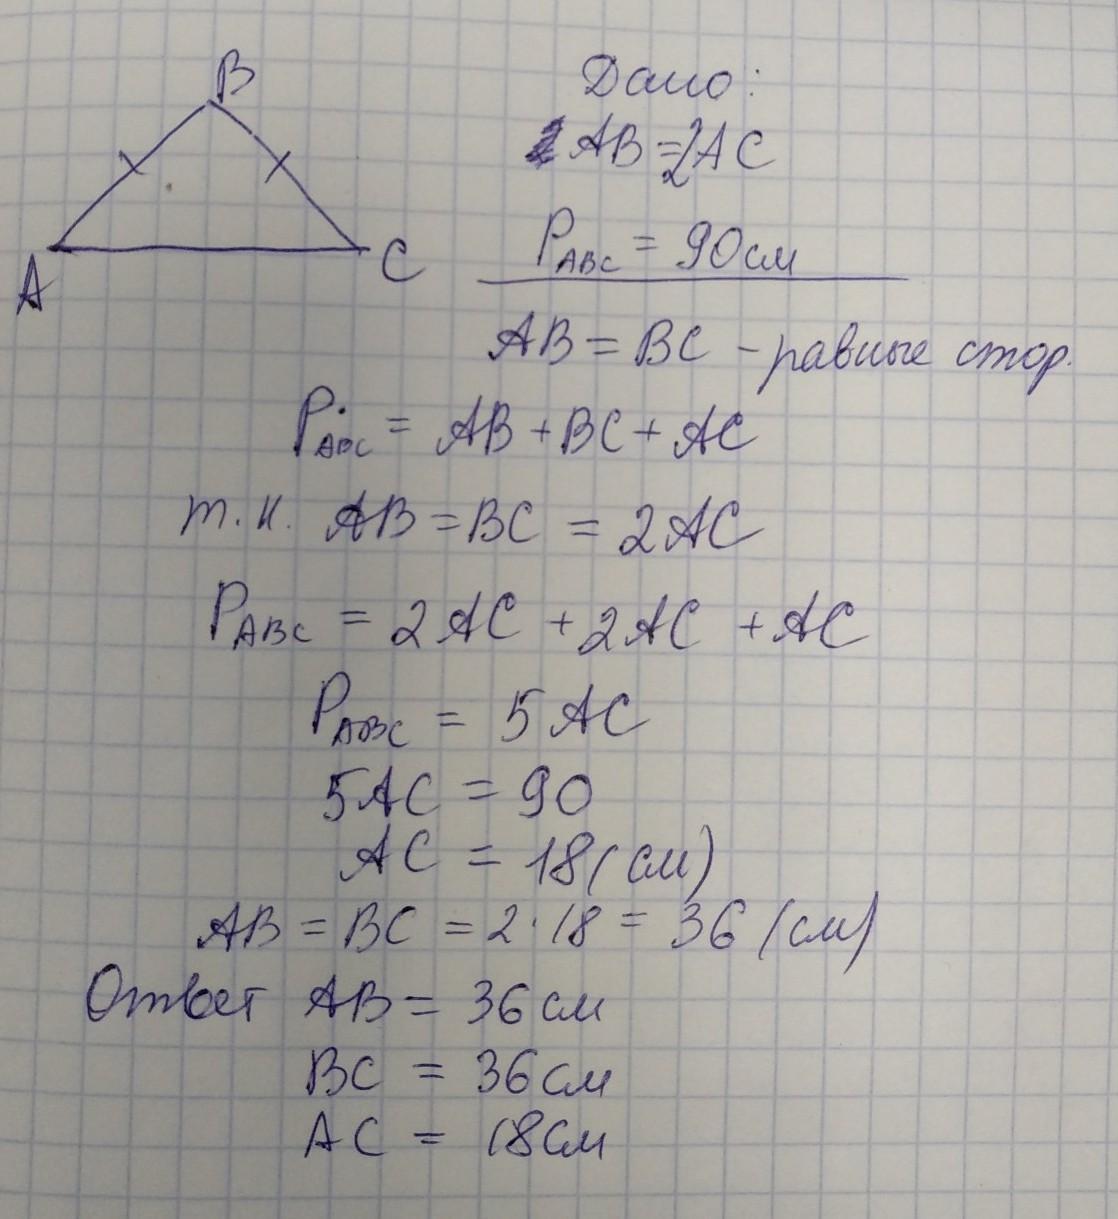 B
A
C
Дано:
AB = 2AC
P ABC = 90см
AB = BC - равные стор.
P ABC = AB + BC + AC
т.к. AB = BC = 2AC
P ABC = 2AC + 2AC + AC
P ABC = 5AC
5AC = 90
AC = 18 (см)
AB = BC = 2·18 = 36 (см)
Ответ AB = 36см
BC = 36см
AC = 18см